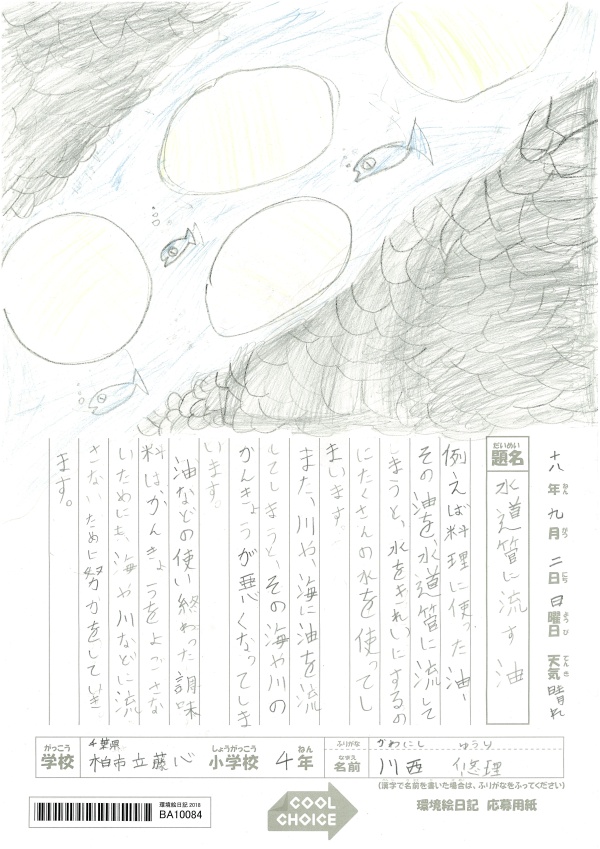 十八年九月二日日曜日 天気晴れ
ねん がつ にち ようび てんき
だいめい
題名 水道管に流す油
例えば料理に使った油、
その油を、水道管に流して
しまうと、水をきれいにするの
にたくさんの水を使ってし
まいます。
また、川や、海に油を流
してしまうと、その海や川の
かんきょうが悪くなってしま
います。
油などの使い終わった調味
料はかんきょうをよごさな
いためにも、海や川などに流
さないために努力をしていき
ます。
がっこう
学校 千葉県
柏市立藤心
しょうがっこう
小学校 4年
ねん
ふりがな かわにし ゆうり
なまえ
名前 川西 悠理
(漢字で名前を書いた場合は、ふりがなをふってください)
環境絵日記 2018
BA10084
COOL
CHOICE
環境絵日記 応募用紙